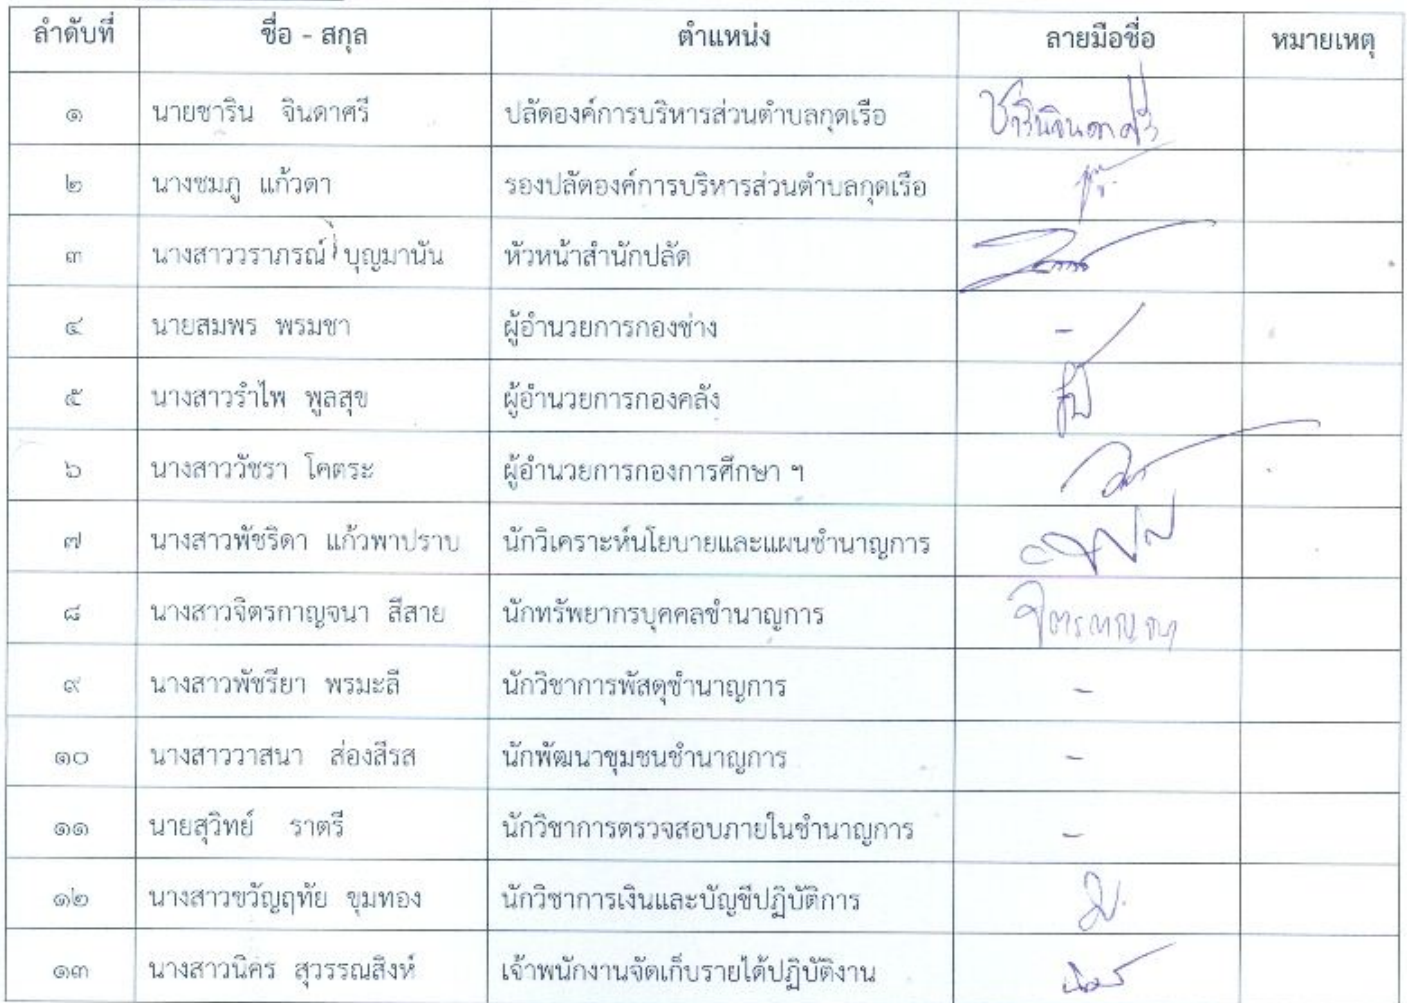 ลำดับที่ ชื่อ - สกุล ตำแหน่ง ลายมือชื่อ หมายเหตุ
๑ นายชาริน จินดาศรี ปลัดองค์การบริหารส่วนตำบลกุดเรือ ชารินจินดาศรี
๒ นางชมภู แก้วดา รองปลัดองค์การบริหารส่วนตำบลกุดเรือ
๓ นางสาววราภรณ์ บุญมานัน หัวหน้าสำนักปลัด
๔ นายสมพร พรมชา ผู้อำนวยการกองช่าง -
๕ นางสาวรำไพ พูลสุข ผู้อำนวยการกองคลัง
๖ นางสาววัชรา โคตระ ผู้อำนวยการกองการศึกษา ฯ
๗ นางสาวพัชริดา แก้วพาปราบ นักวิเคราะห์นโยบายและแผนชำนาญการ
๘ นางสาวจิตรกาญจนา สีสาย นักทรัพยากรบุคคลชำนาญการ จิตรกาญจนา
๙ นางสาวพัชรียา พรมะลี นักวิชาการพัสดุชำนาญการ -
๑๐ นางสาววาสนา ส่องสีรส นักพัฒนาชุมชนชำนาญการ -
๑๑ นายสุวิทย์ ราตรี นักวิชาการตรวจสอบภายในชำนาญการ -
๑๒ นางสาวขวัญฤทัย ขุมทอง นักวิชาการเงินและบัญชีปฏิบัติการ
๑๓ นางสาวนิคร สุวรรณสิงห์ เจ้าพนักงานจัดเก็บรายได้ปฏิบัติงาน